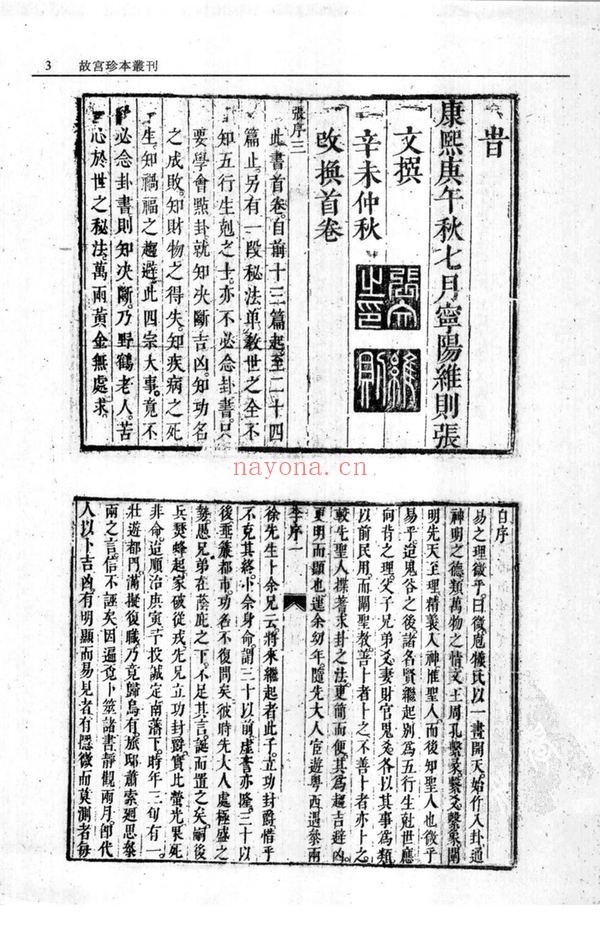 3 故宮珍本叢刊
旹
康熙庚午秋七月寧陽維則張
文撰
辛未仲秋
改換首卷
張文之印
維則
張序三
此書首卷。自前十三篇起。至二十四
篇止。另有一段秘法。單教世之全不
知五行生剋之士。亦不必念卦書。只
要學會點卦。就知決斷吉凶。知功名
之成敗。知財物之得失。知疾病之死
生。知禍福之趨避。此四宗大事。竟不
必念卦書。則知決斷。乃野鶴老人。苦
心於世之秘法。萬兩黃金無處求
nayona.cn
自序
易之理微乎。曰微。庖犧氏以一畫開天。始作八卦。通
神明之德。類萬物之情。文王周孔繫彖繫爻繫象。闡
明先天至理。精義入神。惟聖人而後知聖人也。微乎
易乎。迨鬼谷之後。諸名賢繼起。別為五行生剋世應
向背之理。父子兄弟妻財官鬼。爻各以其事為類
以前民用。而闡聖教。善卜者卜之。不善卜者亦卜之
較先聖人揲蓍求卦之法。更簡而便。其為趨吉避凶
更明而顯也。運余幼年。隨先大人宦遊粵西。遇蔡兩
李序一
徐先生卜余兄云。將來繼起者此子。立功封爵。惜乎
不克其終。卜余身命。謂三十以前虛費亦隆。三十以
後垂簾都市。功名不復問矣。彼時先大人處極盛之
勢。愚兄弟在蔭庇之下。不足其言。誕而置之矣。嗣後
兵燹蜂起。家破從戎。先兄立功封爵。實此螢光。果死
非命。迨順治庚寅。于投誠定南藩下。時年三旬有一
壯遊都門。滿擬復職。乃竟歸烏有。旅邸蕭索。廻思蔡
兩之言。信不誣矣。因遍覓卜筮諸書。靜觀兩月。即代
人以卜吉凶。有明顯而易見者。有隱微而莫測者。每